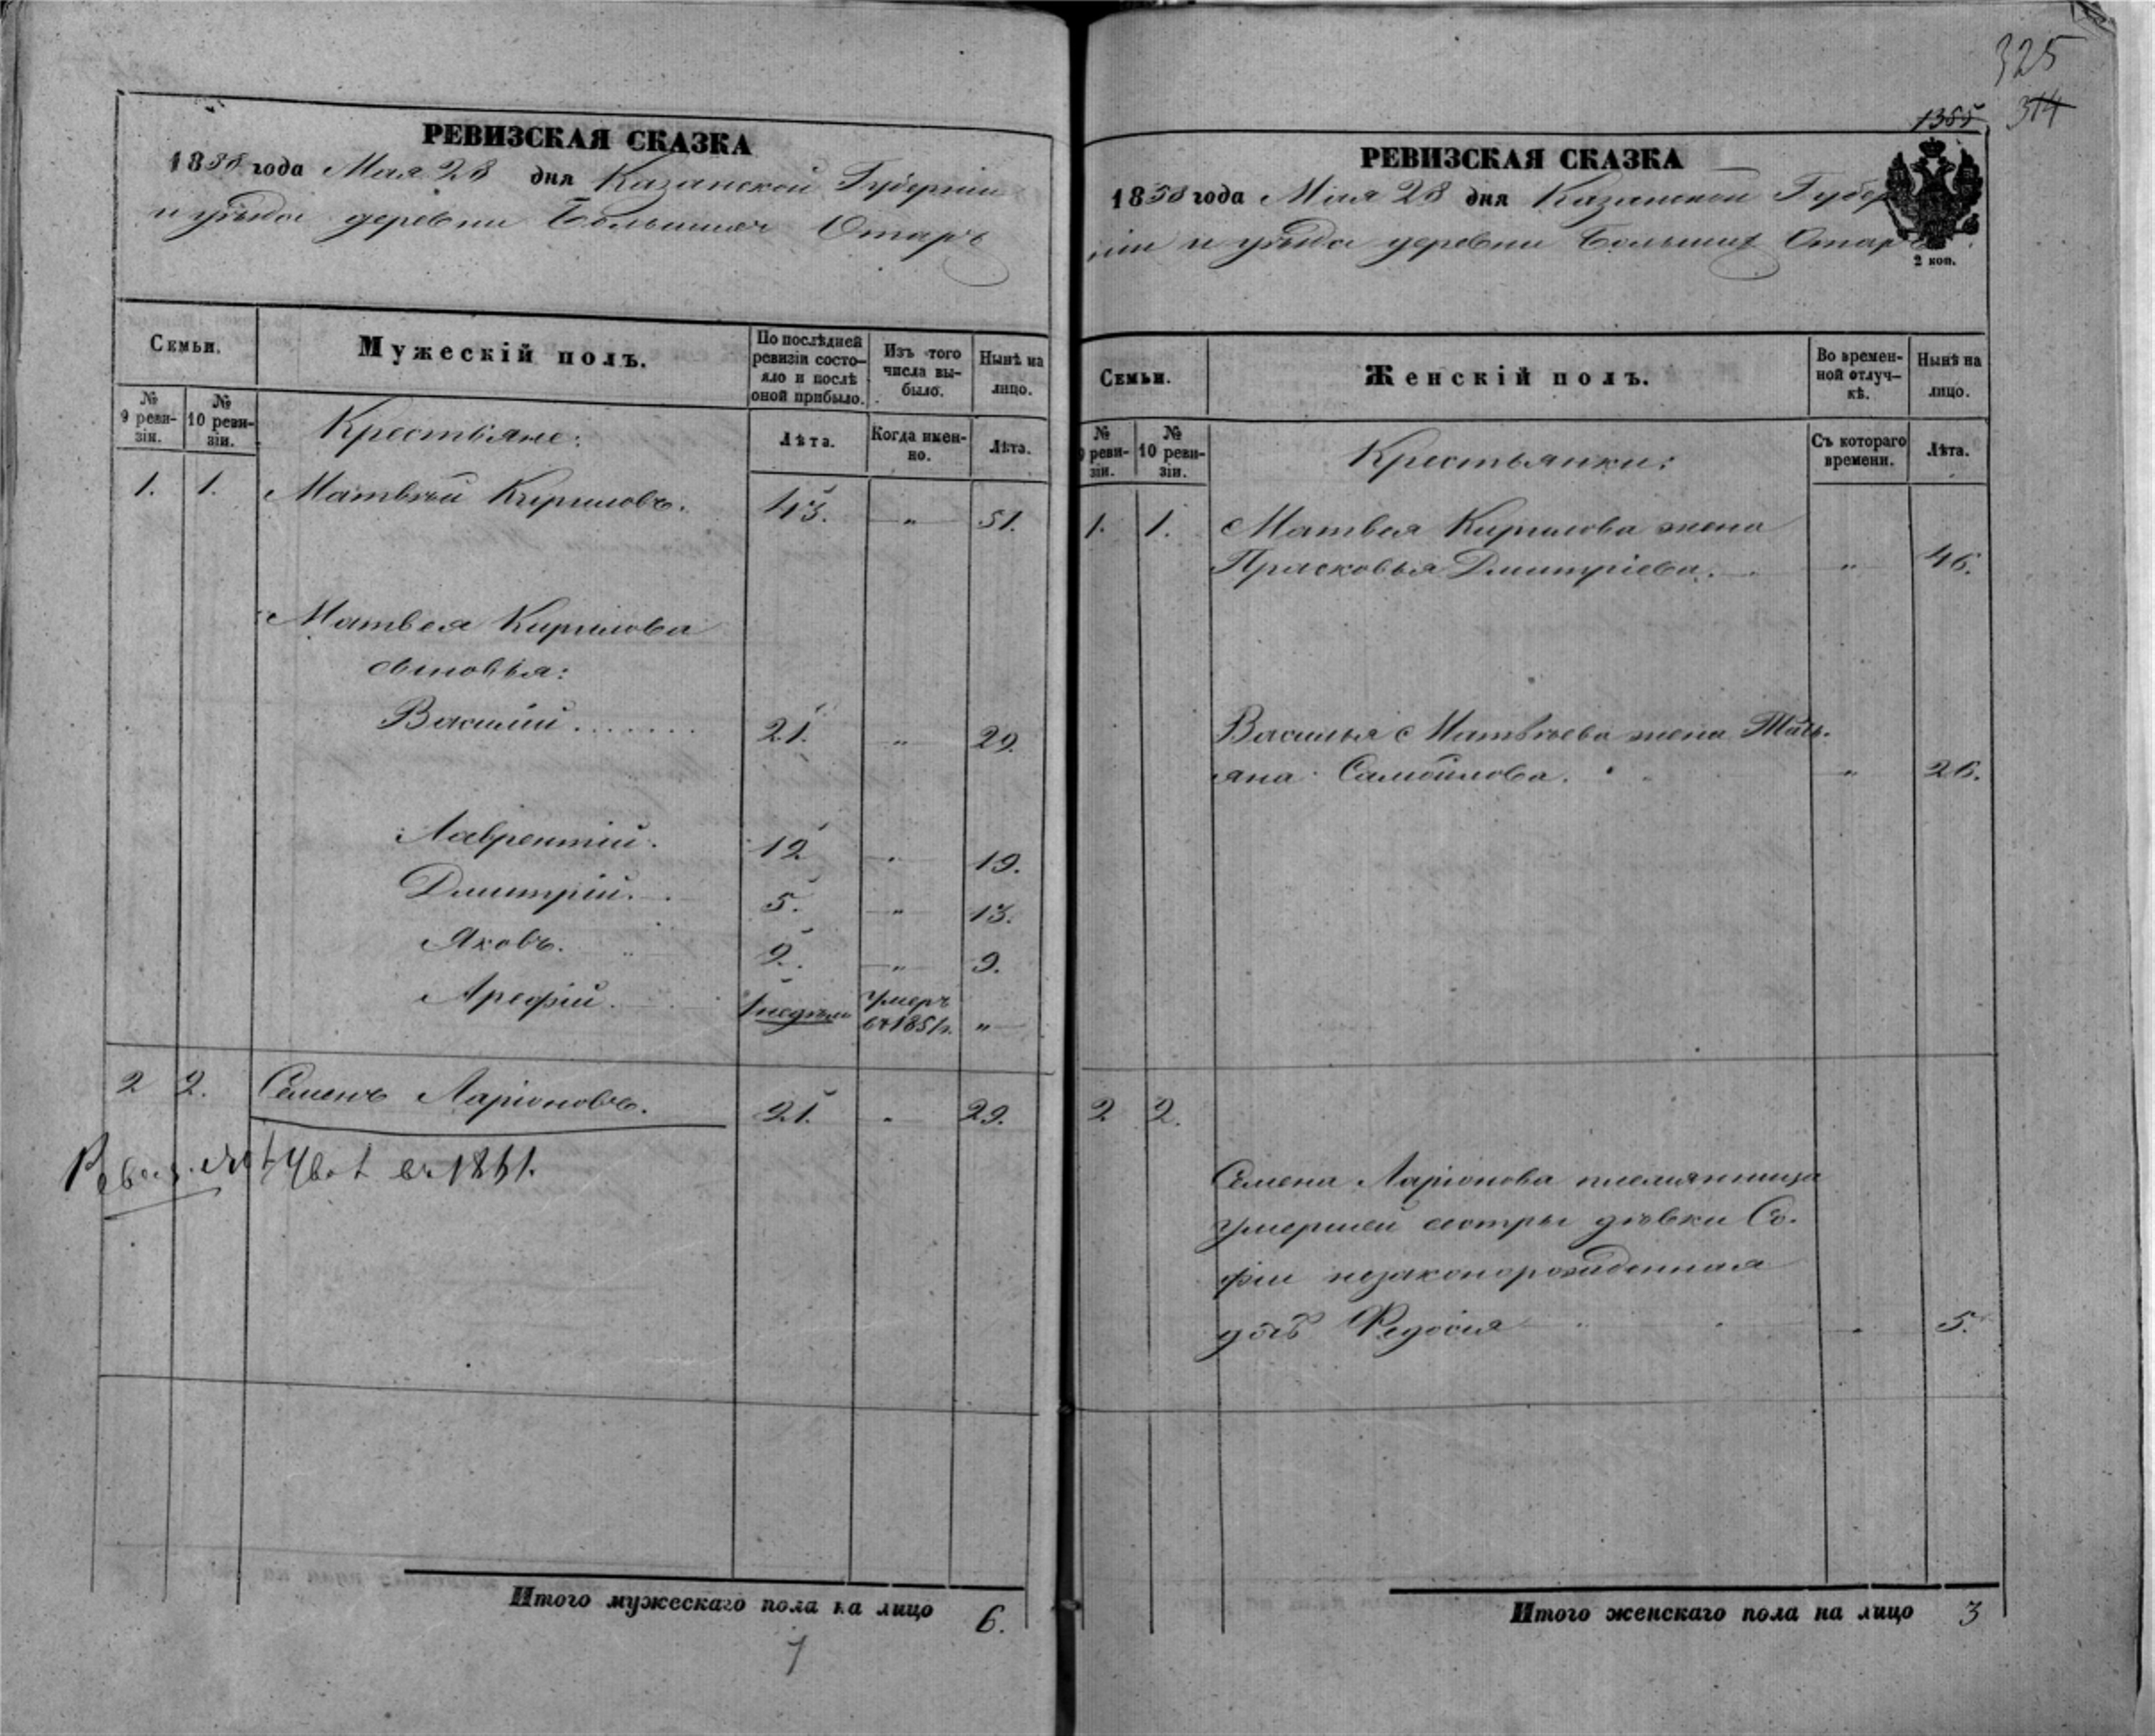 РЕВИЗСКАЯ СКАЗКА
1858 года Мая 28 дня Казанской Губерніи
и уѣзда деревни Большихъ Отаръ
Семьи.
Мужескій полъ.
По послѣдней ревизіи состояло и послѣ оной прибыло.
Изъ того числа выбыло.
Нынѣ на лицо.
№ 9 ревизіи.
№ 10 ревизіи.
Крестьяне:
Лѣта.
Когда именно.
Лѣта.
1. 1. Матвѣй Кириловъ. 43. " 51.
Матвея Кирилова
сыновья:
Василій 21. " 29.
Лаврентій. 12 " 19.
Дмитрій. 5. " 13.
Яковъ. 2. " 9.
Арефій. 1 недѣли умеръ
въ 1851 г. "
2 2. Семенъ Ларіоновъ. 21. " 29.
въ 1861.
Итого мужескаго пола на лицо 6.
7
325
314
1385
РЕВИЗСКАЯ СКАЗКА
1858 года Мая 28 дня Казанской Губер
ніи и уѣзда деревни Большихъ Отаръ
2 коп.
Семьи.
Женскій полъ.
Во временной отлучкѣ.
Нынѣ на лицо.
№ 9 ревизіи.
№ 10 ревизіи.
Крестьянки:
Съ котораго времени.
Лѣта.
1. 1. Матвея Кирилова жена
Прасковья Дмитріева. " 46.
Василья Матвѣева жена Тать-
яна Самойлова. " 26.
2 2.
Семена Ларіонова племянница
умершей сестры дѣвки Со-
фіи незаконорожденная
дочь Федосія " 5.
Итого женскаго пола на лицо 3